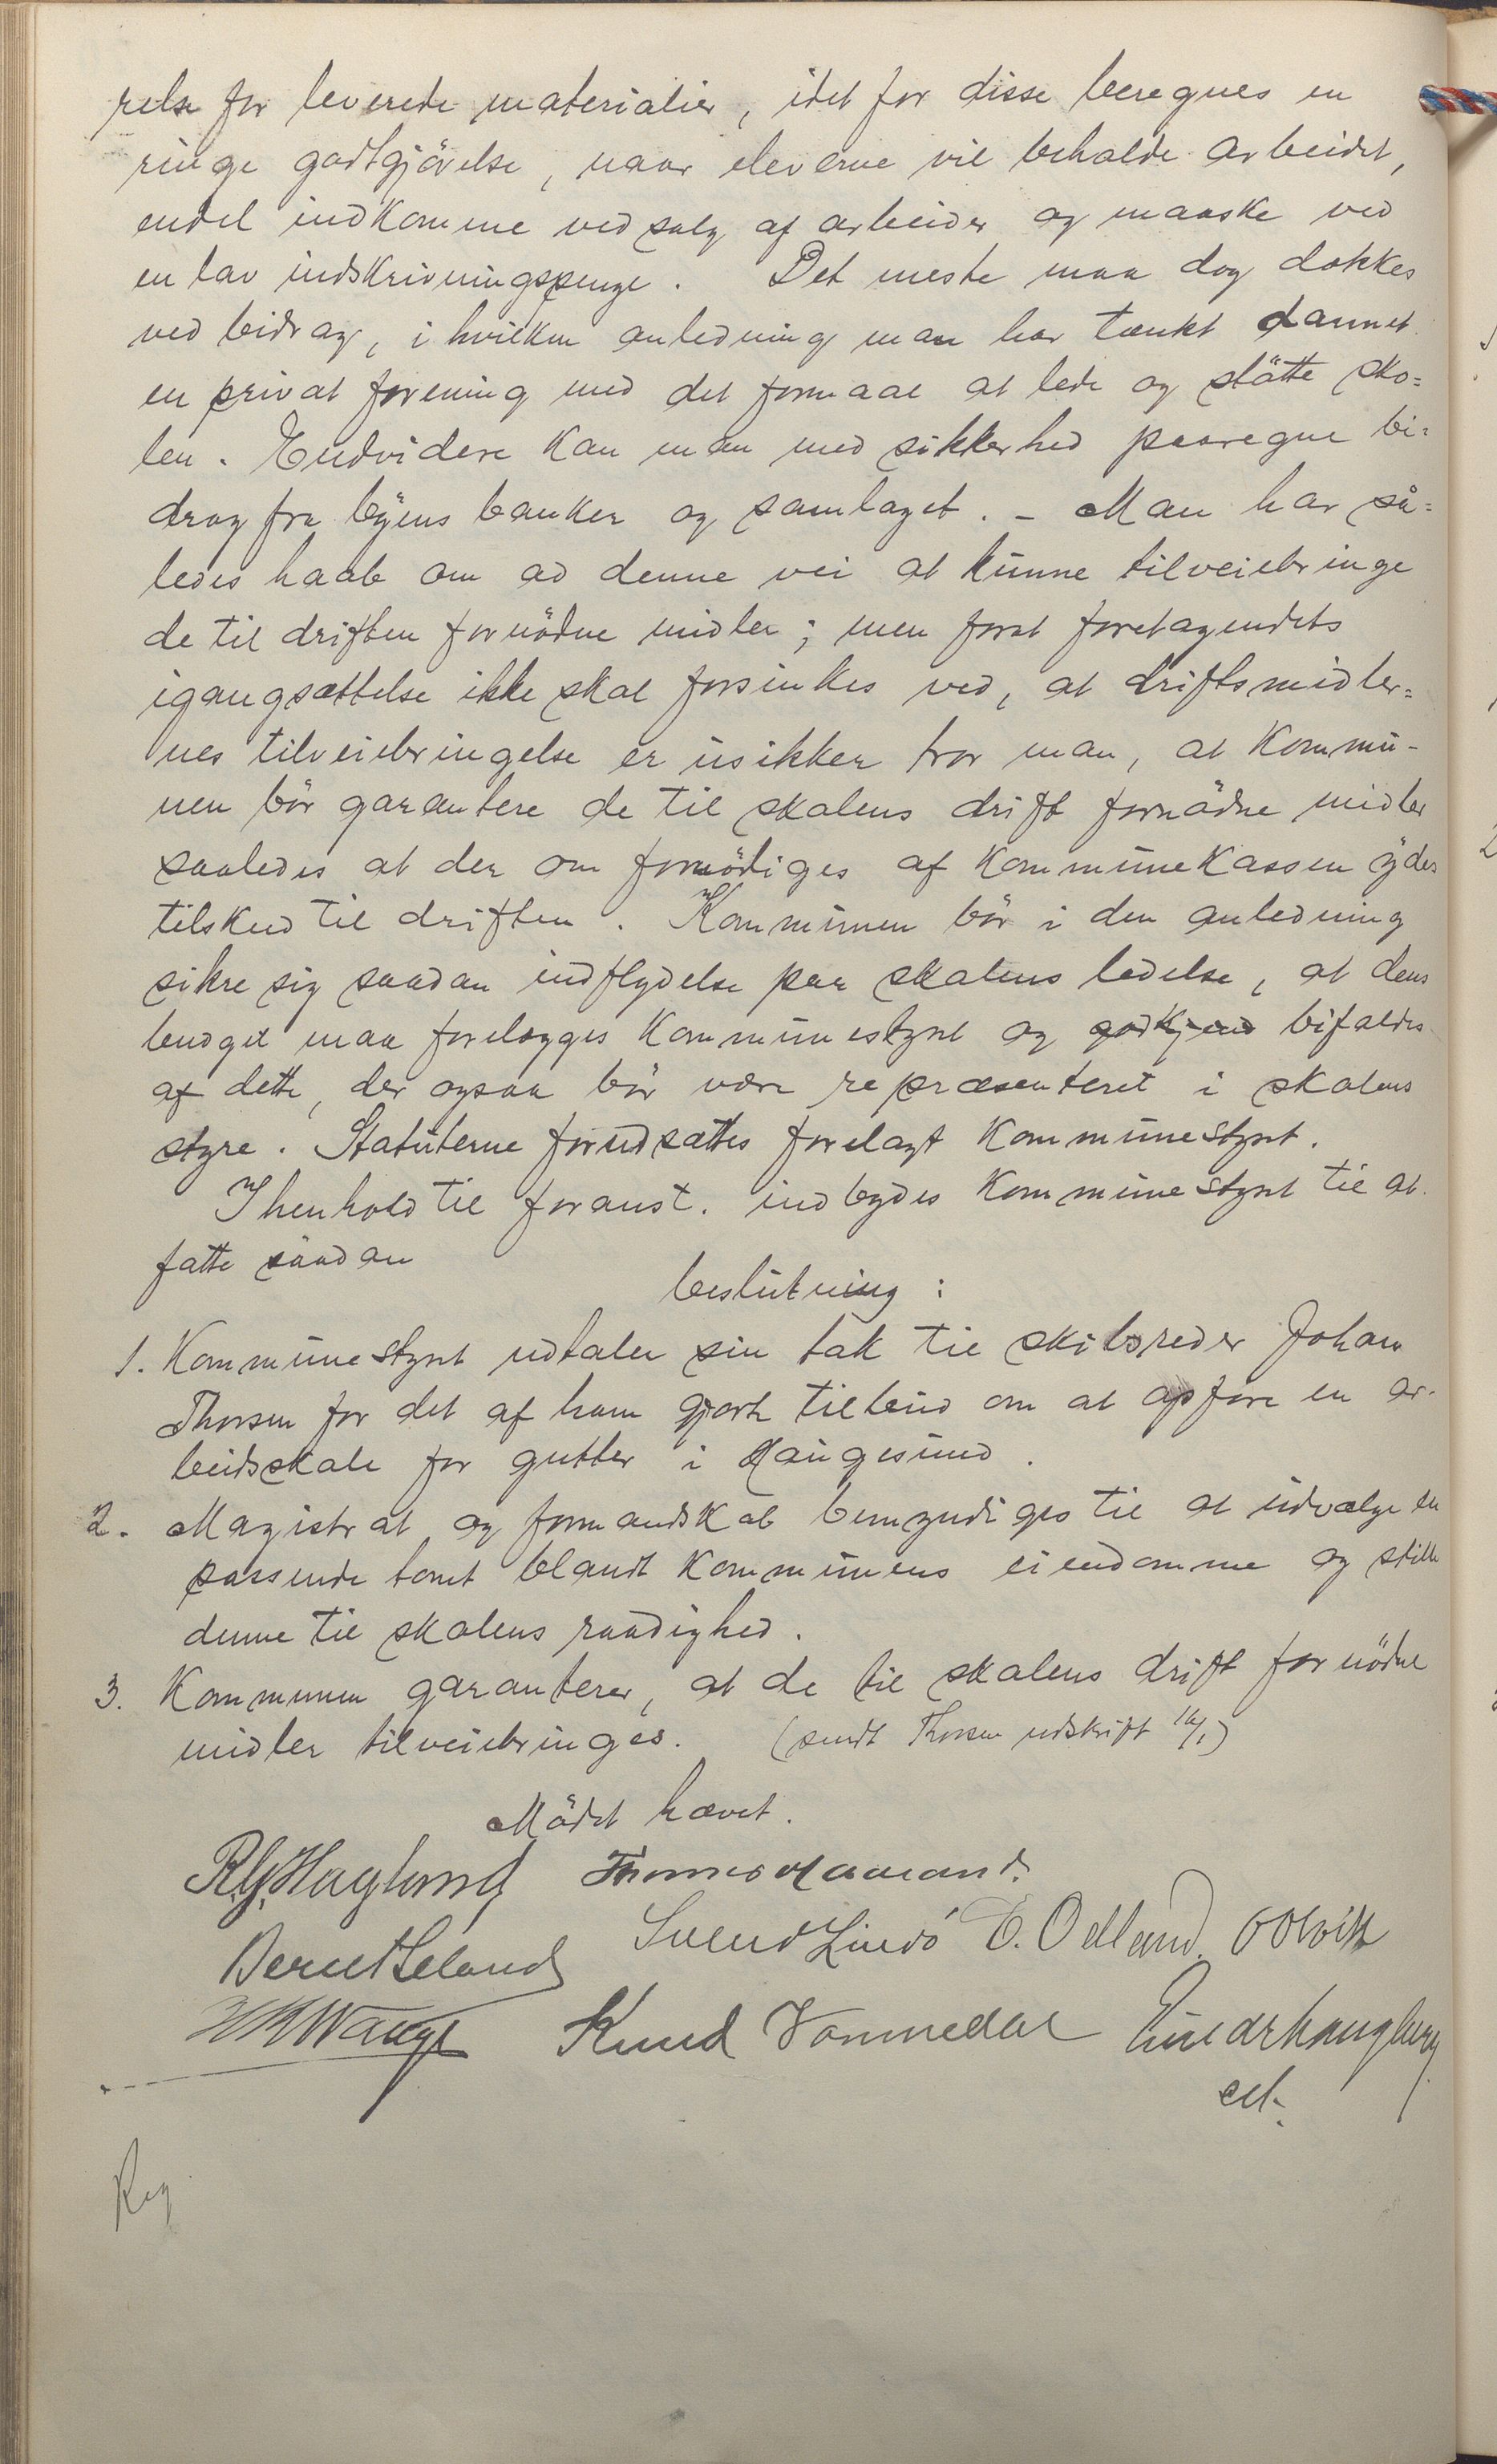 relse for leverede materialier, idet for disse beregnes en
ringe godtgjörelse, naar eleverne vil beholde arbeidet,
endel indkomme ved salg af arbeider og maaske ved
en lav indskrivningspenge. Det meste maa dog dækkes
ved bidrag, i hvilken anledning man har tænkt dannet
en privat forening med det formaal at lede og stötte sko=
len. Endvidere kan man med sikkerhed paaregne bi=
drag fra byens banker og samlaget. - Man har så=
ledes haab om ad denne vei at kunne tilveiebringe
de til driften fornödne midler; men forat foretagendets
igangsættelse ikke skal forsinkes ved, at driftsmidler=
nes tilveiebringelse er usikker tror man, at kommu-
nen bör garantere de til skolens drift fornödne midler
saaledes at der om fornödiges af kommunekassen ydes
tilskud til driften. Kommunen bör i den anledning
sikre sig saadan indflydelse paa skolens ledelse, at dens
budget maa forelægges kommunestyret og godkjend bifaldes
af dette, der ogsaa bör være repræsenteret i skolens
styre. Statuterne forudsættes forelagt kommunestyret.
I henhold til foranst. indbydes kommunestyret til at
fatte saadan
beslutning:
1. Kommunestyret udtaler sin tak til skibsreder Johan
Thorsen for det af ham gjorte tilbud om at opföre en ar-
beidsskole for gutter i Haugesund.
2. Magistrat og formandskab bemyndiges til at udvælge en
passende tomt blandt kommunens eiendomme og stille
denne til skolens raadighed.
3. Kommunen garanterer, at de til skolens drift fornödne
midler tilveiebringes. (sendt Thorsen udskrift 16/1)
Mödet hævet.
R.G. Haglund Thomas Haaland.
Bernt Eeland Svend Lindö E. Odland.
Knud Vormedal Einar Haugberg
Reg